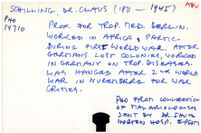 SCHILLING DR. CLAUS (187 - 1945)
PHO
14710
PROF. FOR TROP. MED. BERLIN.
WORKED IN AFRICA & PARTIC.
DURING FIRST WORLD WAR. AFTER
GERMANS LOST COLONIES, WORKED
IN GERMANY ON TROP. DISEASES.
WAS HANGED AFTER 2ND WORLD
WAR IN NUREMBERG FOR WAR
CRIMES.
PHO FROM COLLECTION
OF MALARIOLOGISTS
SENT BY DR. SHUTE
HORTON HOSP. EPSOM